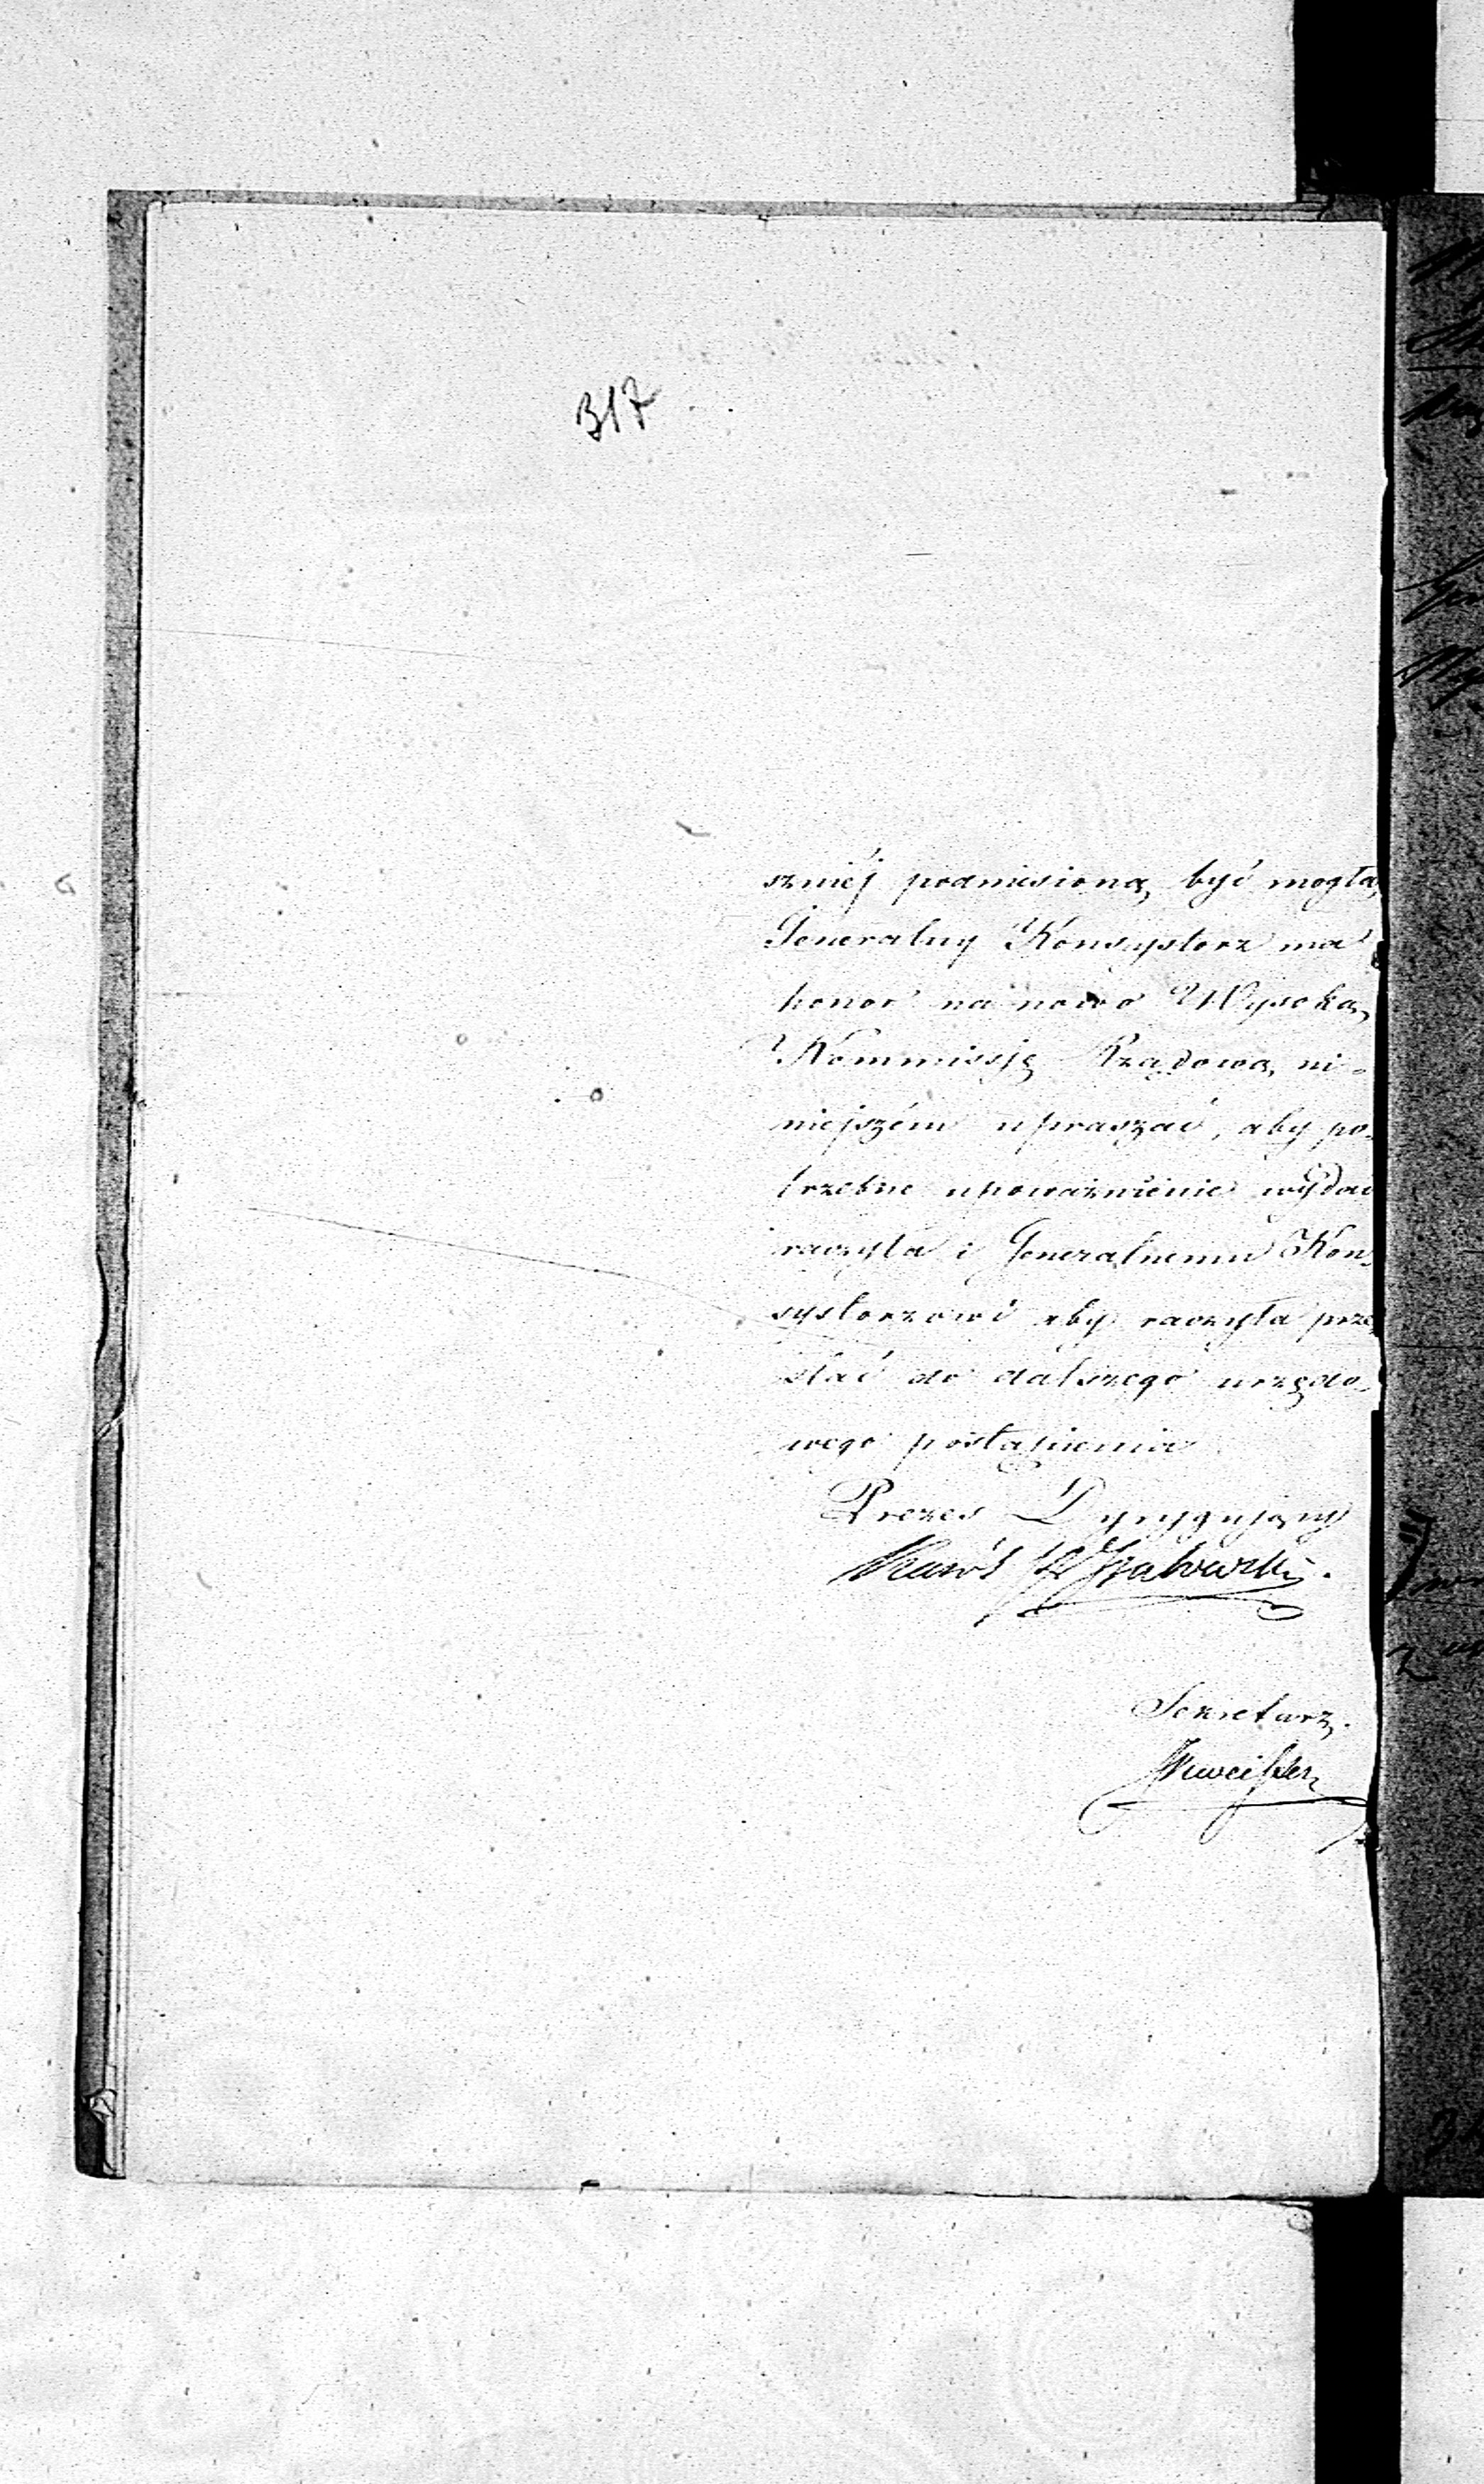 317
szniéj podniesioną być mogła,
Jeneralny Konsystorz ma
honor na nowo Wysoką
Kommissję Rządową ni-
niejszém upraszać, aby po-
trzebne upoważnienie wydać
raczyła i Jeneralnemu Kon-
systorzowi aby raczyła prze-
słać do dalszego urzędo-
wego postąpienia
Prezes Dyrygujący
Karól
Sekretarz.